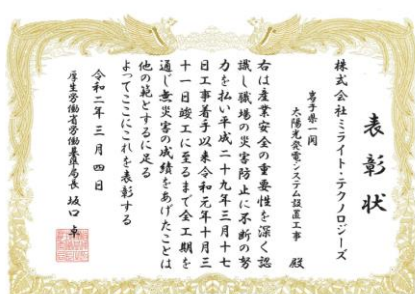 表彰状
株式会社ミライト・テクノロジーズ
岩手県一関
太陽光発電システム設置工事 殿
右は産業安全の重要性を深く認
識し職場の災害防止に不断の努
力を払い平成二十九年三月十七
日工事着手以来令和元年十月三
十一日竣工に至るまで全工期を
通じ無災害の成績をあげたことは
他の範とするに足る
よってここにこれを表彰する
令和二年三月四日
厚生労働省労働基準局長 坂口卓